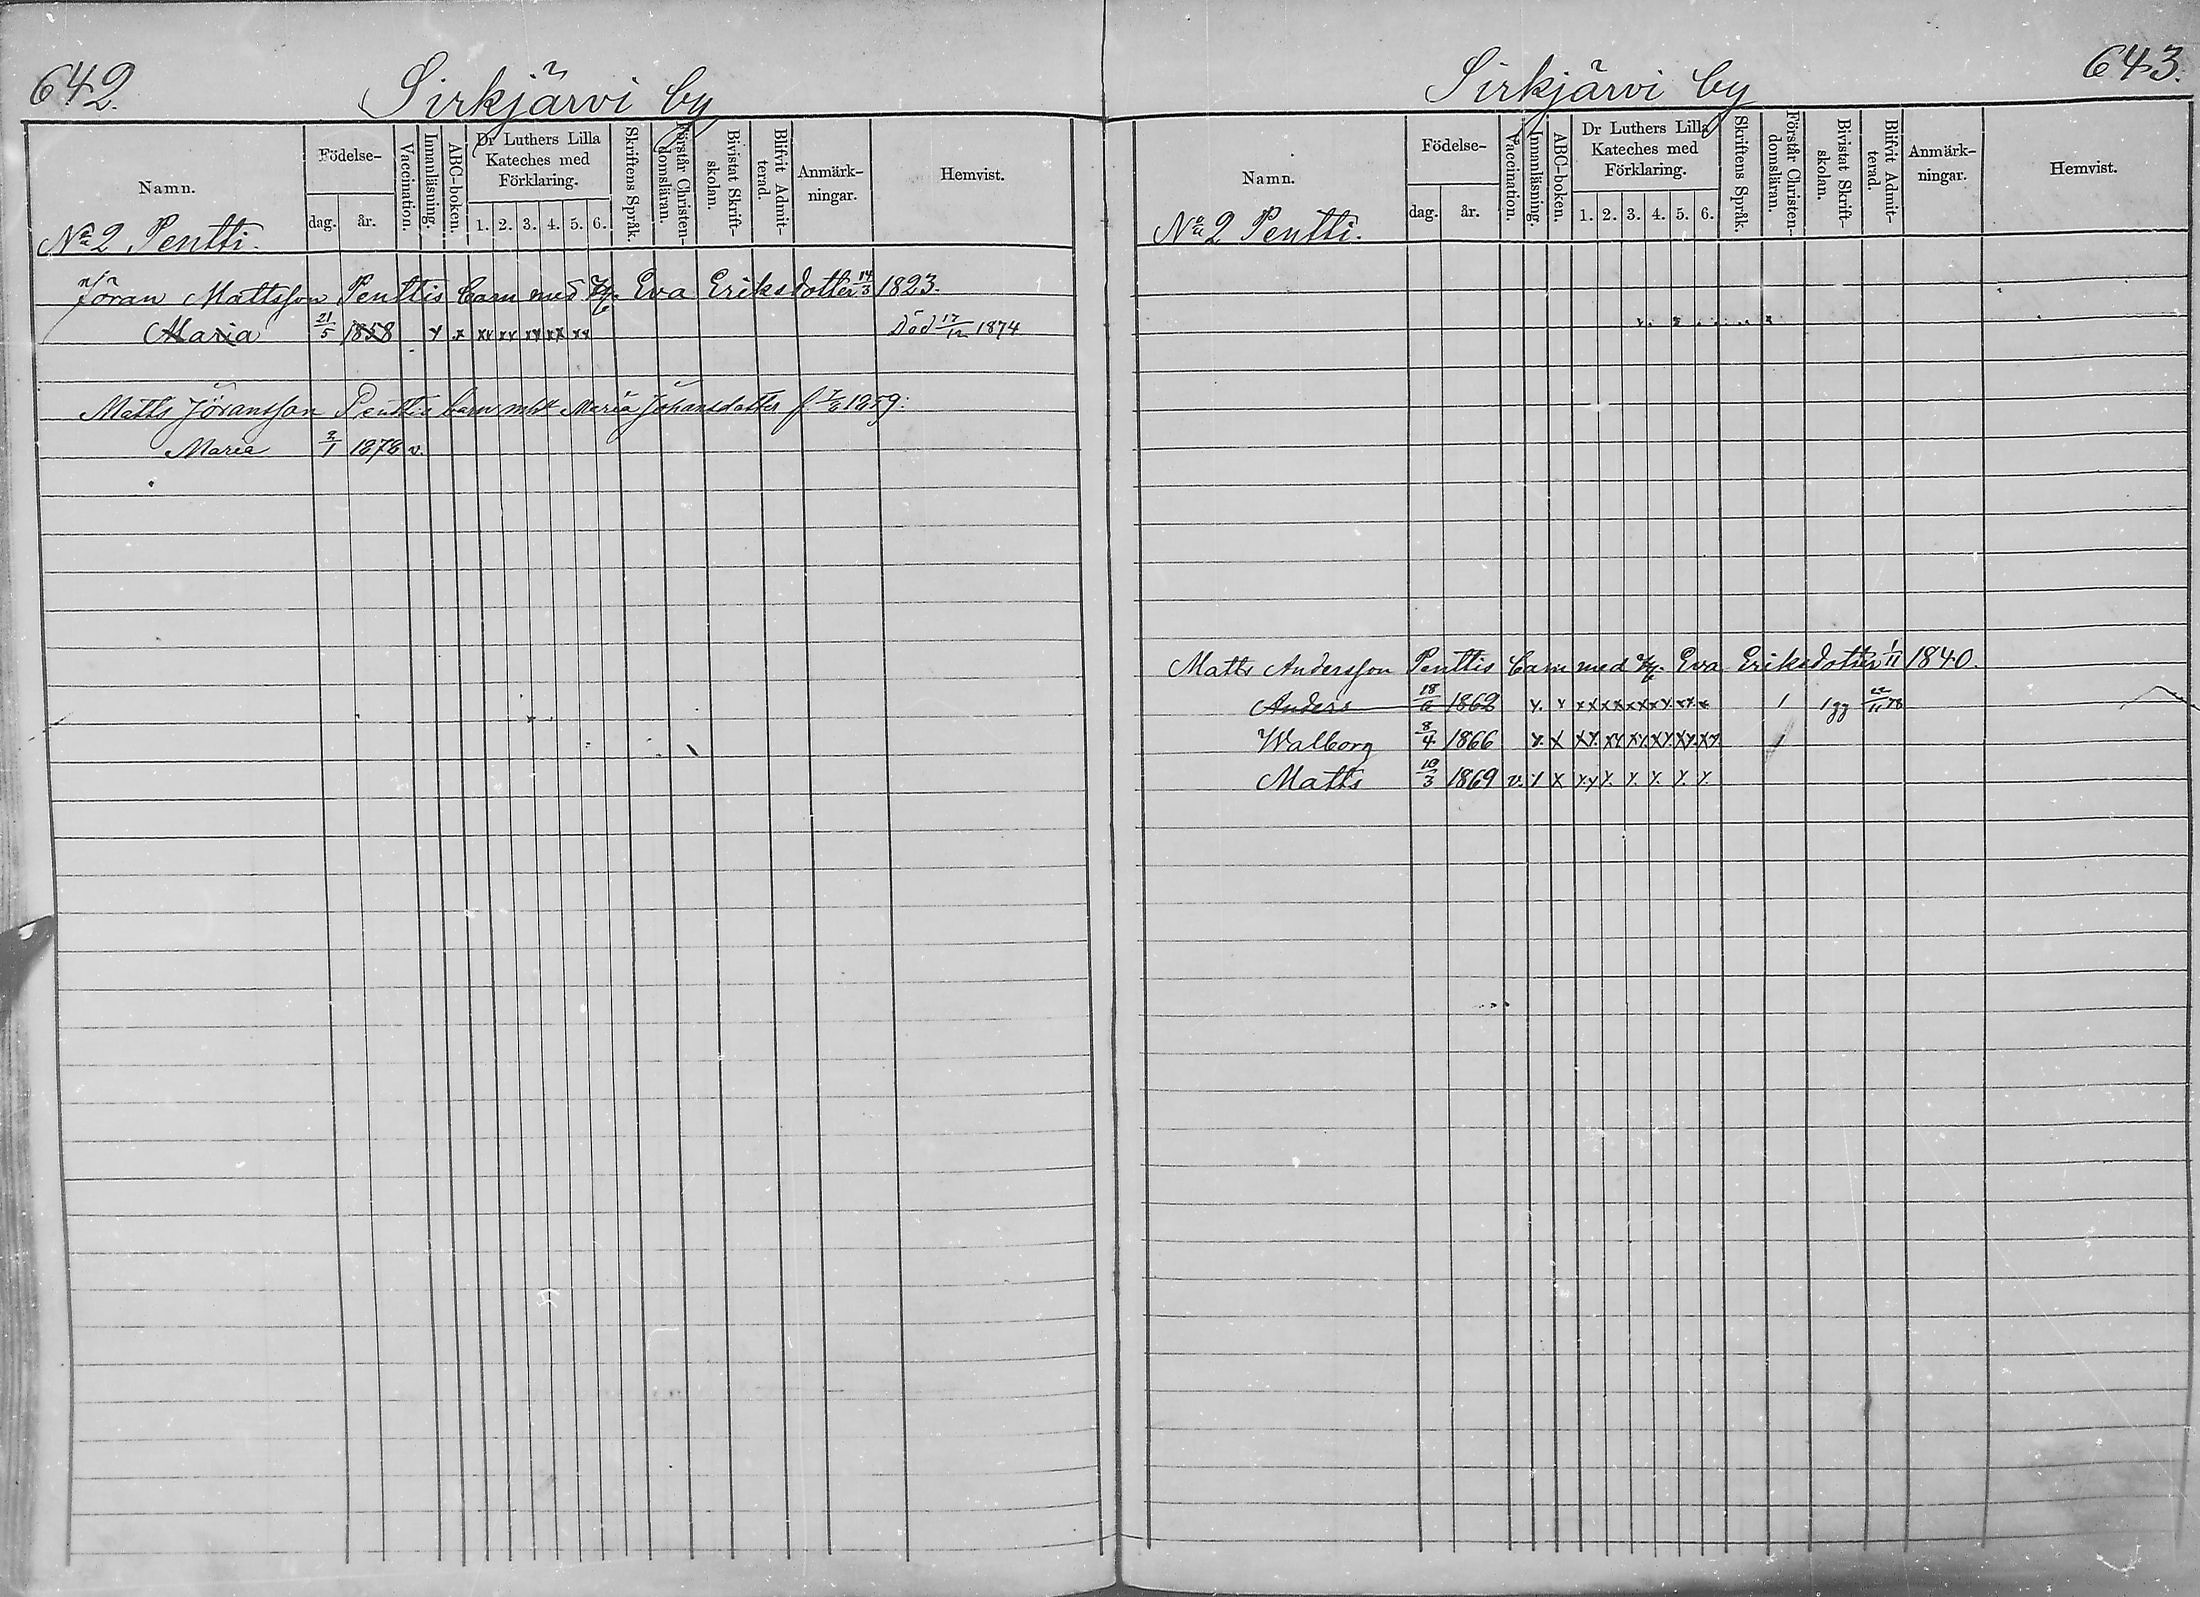 642.
Sirkjärvi by
Namn.
Födelse-
dag.
år.
Vaccination.
Innanläsning.
ABC-boken.
Dr Luthers Lilla Kateches med Förklaring.
1. 2. 3. 4. 5. 6.
Skriftens Språk.
Förstår Christendomsläran.
Bivistat Skriftskolan.
Blifvit Admitterad.
Anmärkningar.
Hemvist.
No 2 Pentti.
Jöran Mattsson Penttis barn med Eva Eriksdotter 14/3 1823.
Maria 21/5 1858 Död 17/12 1874
Matts Jöransson Penttis barn Maria Johansdotter f. 1859.
Maria 2/1 1878 v.
643.
Sirkjärvi by
Namn.
Födelse-
dag.
år.
Vaccination.
Innanläsning.
ABC-boken.
Dr Luthers Lilla Kateches med Förklaring.
1. 2. 3. 4. 5. 6.
Skriftens Språk.
Förstår Christendomsläran.
Bivistat Skriftskolan.
Blifvit Admitterad.
Anmärkningar.
Hemvist.
No 2 Pentti.
Matts Andersson Penttis barn med Eva Eriksdotter 1/11 1840.
Anders 18/6 1862 1 1 gg 22/11 78
Walborg 8/4 1866 1
Matts 10/3 1869 v.